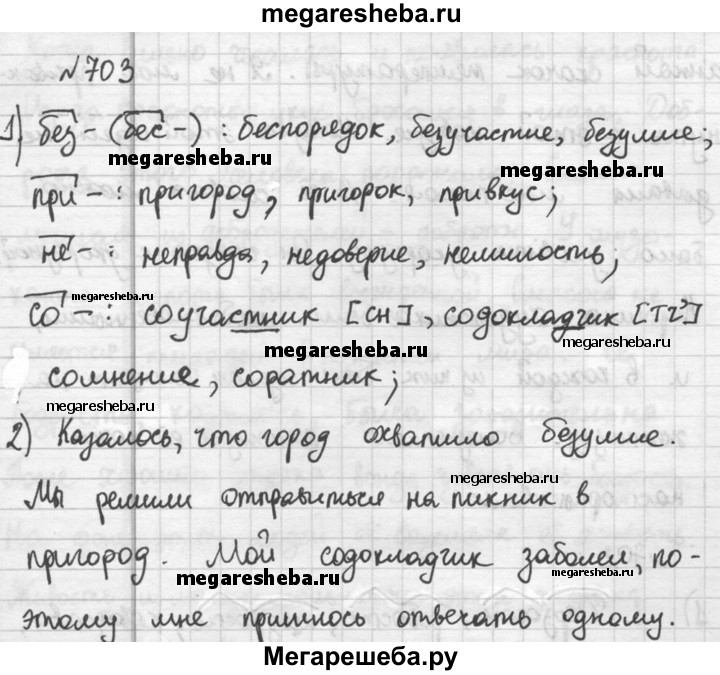 megaresheba.ru
№703
1) без- (бес-): беспорядок, безучастие, безумие;
megaresheba.ru megaresheba.ru
при-: пригород, пригорок, привкус;
не-: неправда, недоверие, немилость;
megaresheba.ru megaresheba.ru
со-: соучастник [сн], содокладчик [тч']
megaresheba.ru
сомнение, соратник;
megaresheba.ru megaresheba.ru
2) Казалось, что город охватило безумие.
megaresheba.ru
Мы решили отправиться на пикник в
пригород. Мой содокладчик заболел, по-
megaresheba.ru megaresheba.ru
этому мне пришлось отвечать одному.
Мегарешеба.ру